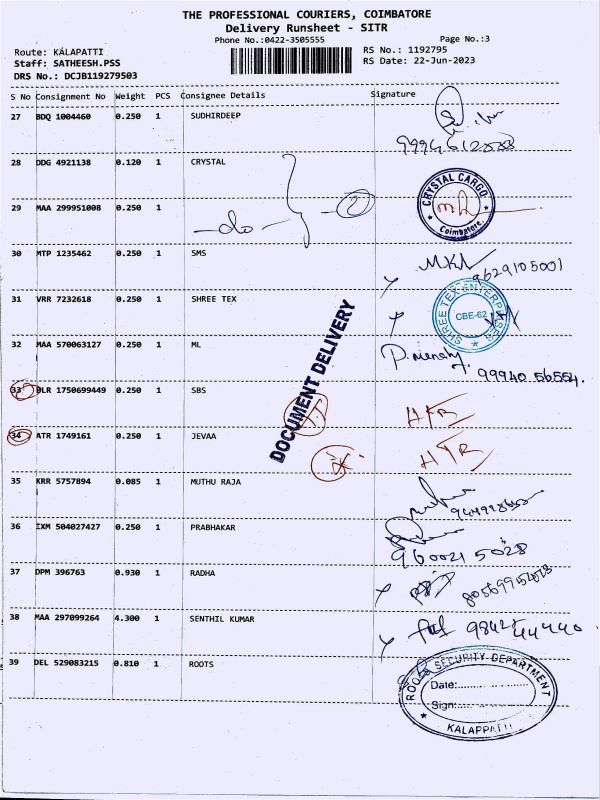 THE PROFESSIONAL COURIERS, COIMBATORE
Delivery Runsheet - SITR
Phone No.:0422-3505555 Page No.:3
Route: KALAPATTI RS No.: 1192795
Staff: SATHEESH.PSS RS Date: 22-Jun-2023
DRS No.: DCJB119279503
S No Consignment No Weight PCS Consignee Details Signature
27 BDQ 1004460 0.250 1 SUDHIRDEEP
28 DDG 4921138 0.120 1 CRYSTAL
CRYSTAL CARGO
Coimbatore.
29 MAA 299951008 0.250 1 -do- 2
30 MTP 1235462 0.250 1 SMS
9629105001
31 VRR 7232618 0.250 1 SHREE TEX
SHREE TEX ENTERPRISES
CBE-62
32 MAA 570063127 0.250 1 ML
99940 56554.
DOCUMENT DELIVERY
33 BLR 1750699449 0.250 1 SBS
34 ATR 1749161 0.250 1 JEVAA
35 KRR 5757894 0.085 1 MUTHU RAJA
36 IXM 504027427 0.250 1 PRABHAKAR
960021 5028
37 DPM 396763 0.930 1 RADHA
38 MAA 297099264 4.300 1 SENTHIL KUMAR
98425 44440
39 DEL 529083215 0.810 1 ROOTS
ROOTS SECURITY DEPARTMENT
Date:
Sign:
KALAPPATTI